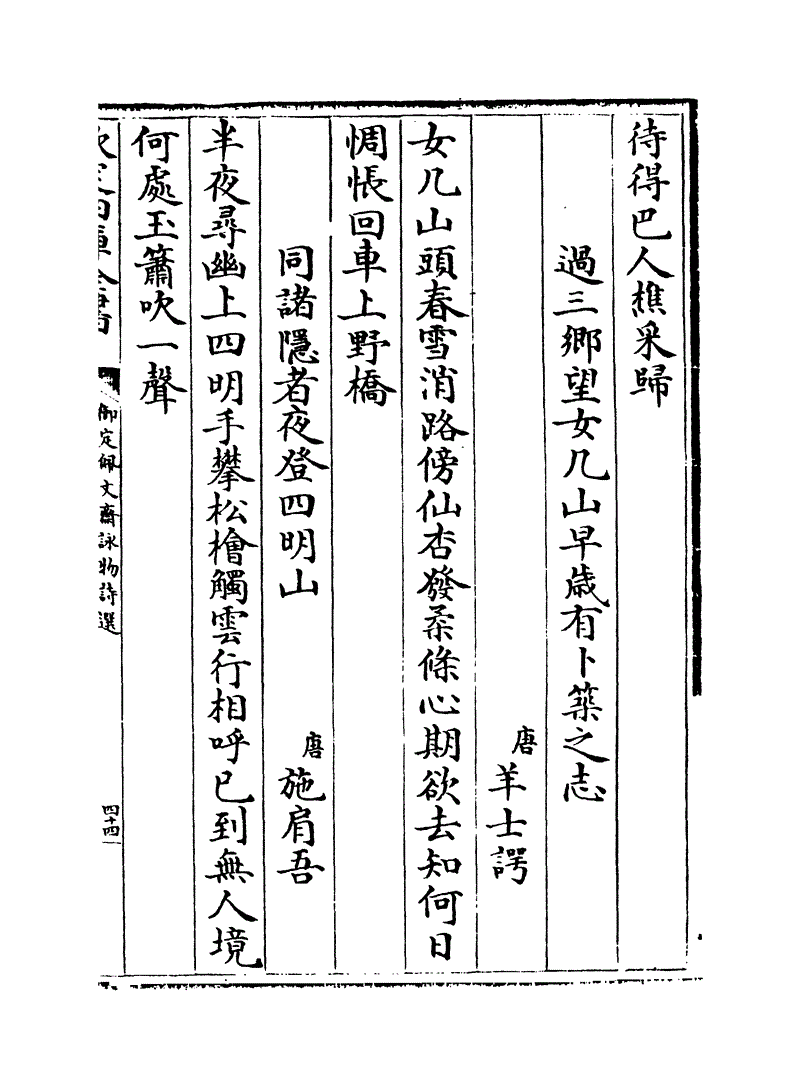 待得巴人樵采歸
過三鄉望女几山早歲有卜築之志
唐羊士諤
女几山頭春雪消路傍仙杏發柔條心期欲去知何日
惆悵回車上野橋
同諸隱者夜登四明山 唐施肩吾
半夜尋幽上四明手攀松檜觸雲行相呼已到無人境
何處玉簫吹一聲
御定佩文齋詠物詩選 四十四